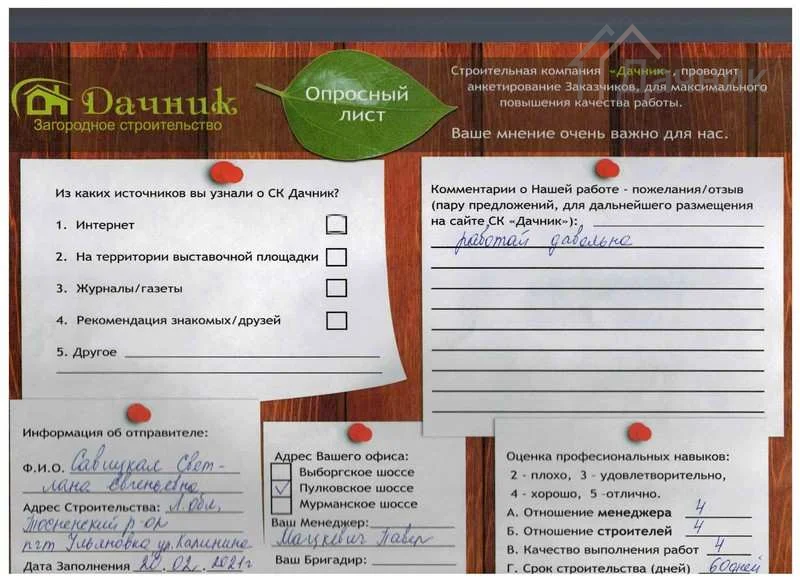 Дачник
Загородное строительство
Опросный
лист
Строительная компания «Дачник», проводит
анкетирование Заказчиков, для максимального
повышения качества работы.
Ваше мнение очень важно для нас.
Дачник
Из каких источников вы узнали о СК Дачник?
1. Интернет
2. На территории выставочной площадки
3. Журналы/газеты
4. Рекомендация знакомых/друзей
5. Другое
Комментарии о Нашей работе - пожелания/отзыв
(пару предложений, для дальнейшего размещения
на сайте СК «Дачник»):
работай давольна
Информация об отправителе:
Ф.И.О. Савицкая Свет-
лана Евгеньевна
Адрес Строительства: Л.обл,
Тосненский р-он
пгт Ульяновка ул.Калинина
Дата Заполнения 20.02.2021г
Адрес Вашего офиса:
Выборгское шоссе
Пулковское шоссе
Мурманское шоссе
Ваш Менеджер:
Мацкевич Павел
Ваш Бригадир:
Оценка профессиональных навыков:
2 - плохо, 3 - удовлетворительно,
4 - хорошо, 5 -отлично.
А. Отношение менеджера 4
Б. Отношение строителей 4
В. Качество выполнения работ 4
Г. Срок строительства (дней) 60дней